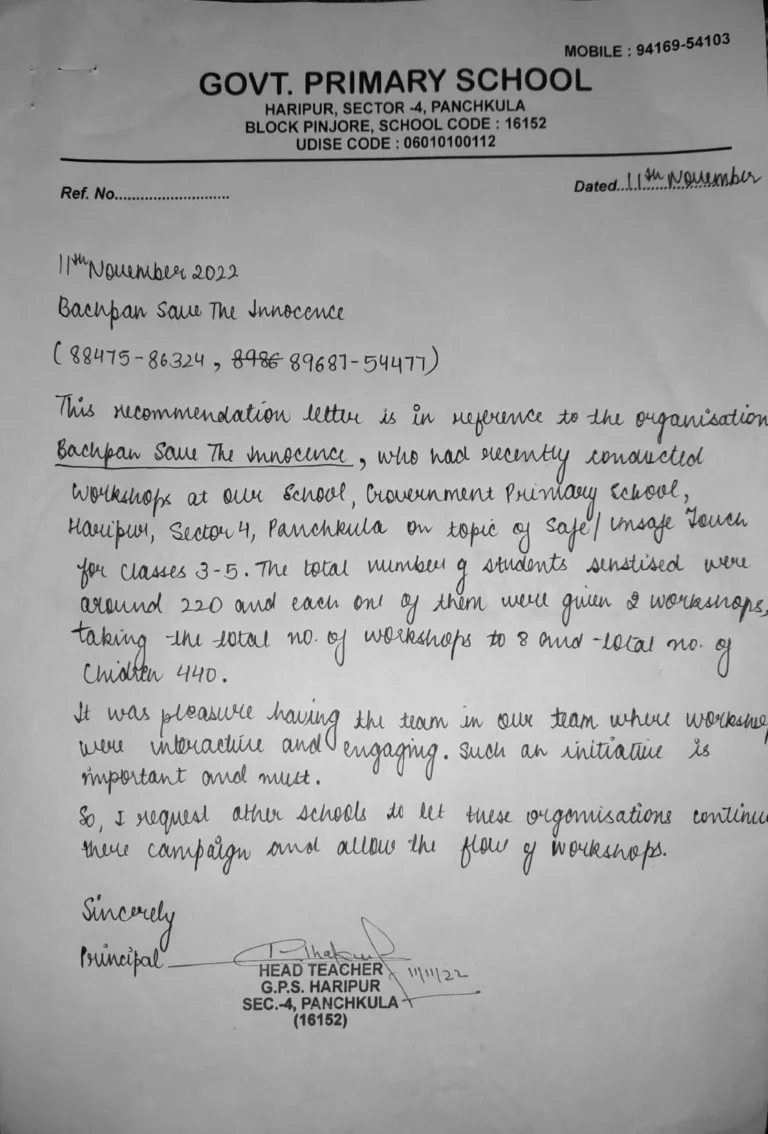 MOBILE : 94169-54103
GOVT. PRIMARY SCHOOL
HARIPUR, SECTOR -4, PANCHKULA
BLOCK PINJORE, SCHOOL CODE : 16152
UDISE CODE : 06010100112
Ref. No........................... Dated...11th November
11th November 2022
Bachpan Save The Innocence
(88475-86324, 8986 89687-54477)
This recommendation letter is in reference to the organisation
Bachpan Save The Innocence, who had recently conducted
workshops at our School, Government Primary School,
Haripur, Sector 4, Panchkula on topic of Safe/Unsafe Touch
for Classes 3-5. The total number of students senstised were
around 220 and each one of them were given 2 workshops,
taking the total no. of workshops to 8 and total no. of
Children 440.
It was pleasure having the team in our team where workshop
were interactive and engaging. Such an initiative is
important and must.
So, I request other schools to let these organisations continue
there campaign and allow the flow of workshops.
Sincerely
Principal
HEAD TEACHER 11/11/22
G.P.S. HARIPUR
SEC.-4, PANCHKULA
(16152)